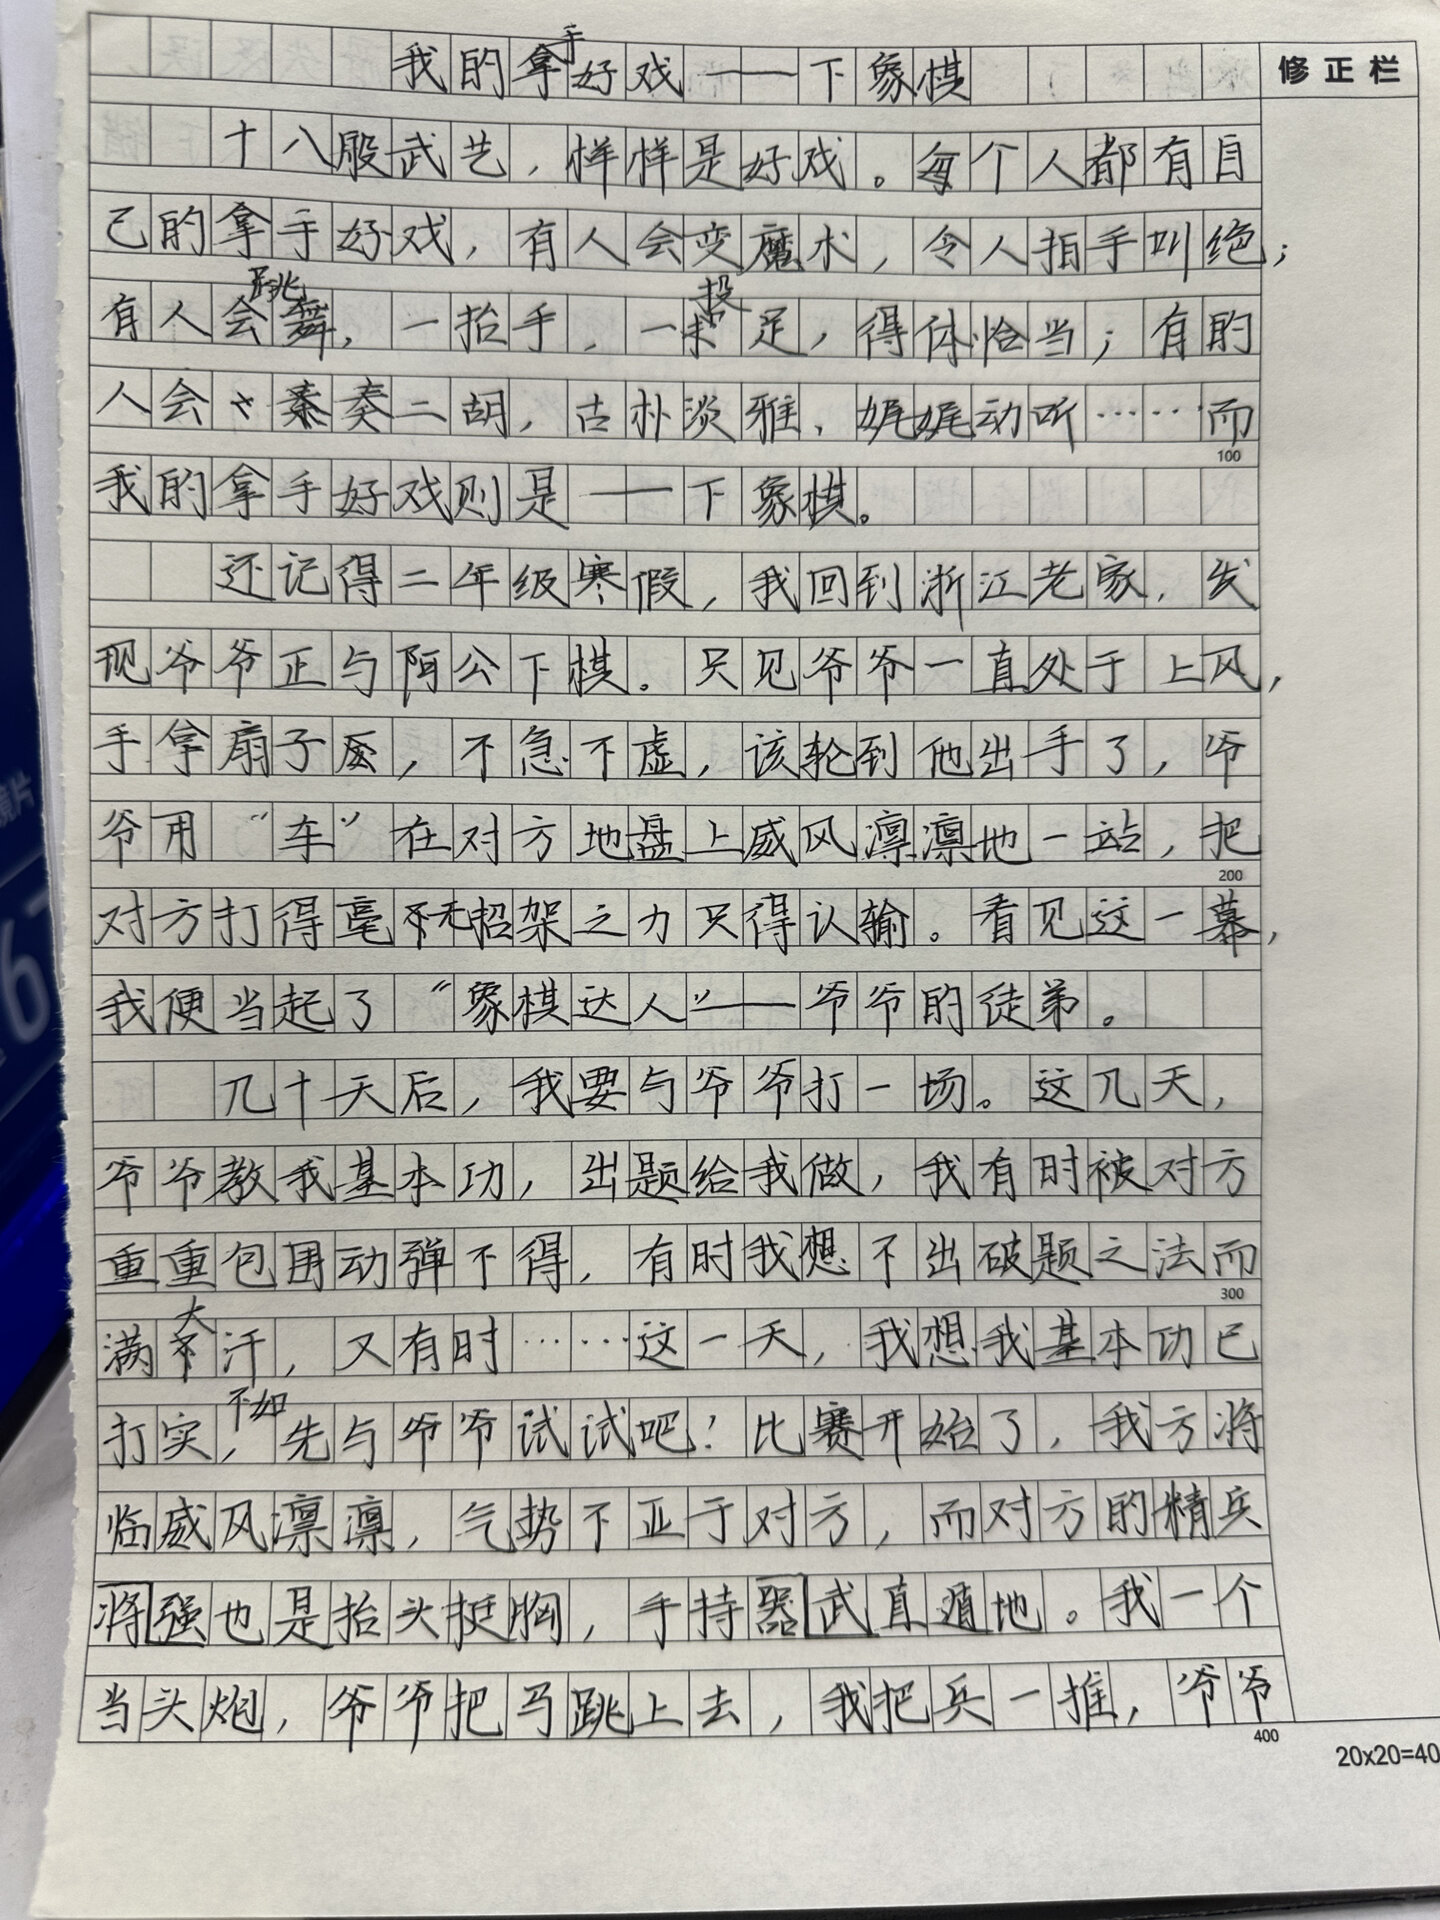 我的拿手好戏——下象棋
修正栏
十八般武艺，样样是好戏。每个人都有自
己的拿手好戏，有人会变魔术，令人拍手叫绝；
有人会跳舞，一抬手，一投足，得体恰当；有的
人会奏二胡，古朴淡雅，娓娓动听……而
100
我的拿手好戏则是——下象棋。
还记得二年级寒假，我回到浙江老家，发
现爷爷正与阿公下棋。只见爷爷一直处于上风，
手拿扇子，不急不虚，该轮到他出手了，爷
爷用“车”在对方地盘上威风凛凛地一站，把
200
对方打得毫无招架之力只得认输。看见这一幕，
我便当起了“象棋达人”——爷爷的徒弟。
几十天后，我要与爷爷打一场。这几天，
爷爷教我基本功，出题给我做，我有时被对方
重重包围动弹不得，有时我想不出破题之法而
300
满大汗，又有时……这一天，我想我基本功已
打实，不如先与爷爷试试吧！比赛开始了，我方将
临威风凛凛，气势不亚于对方，而对方的精兵
将强也是抬头挺胸，手持器武直遁地。我一个
当头炮，爷爷把马跳上去，我把兵一推，爷爷
400
20x20=40